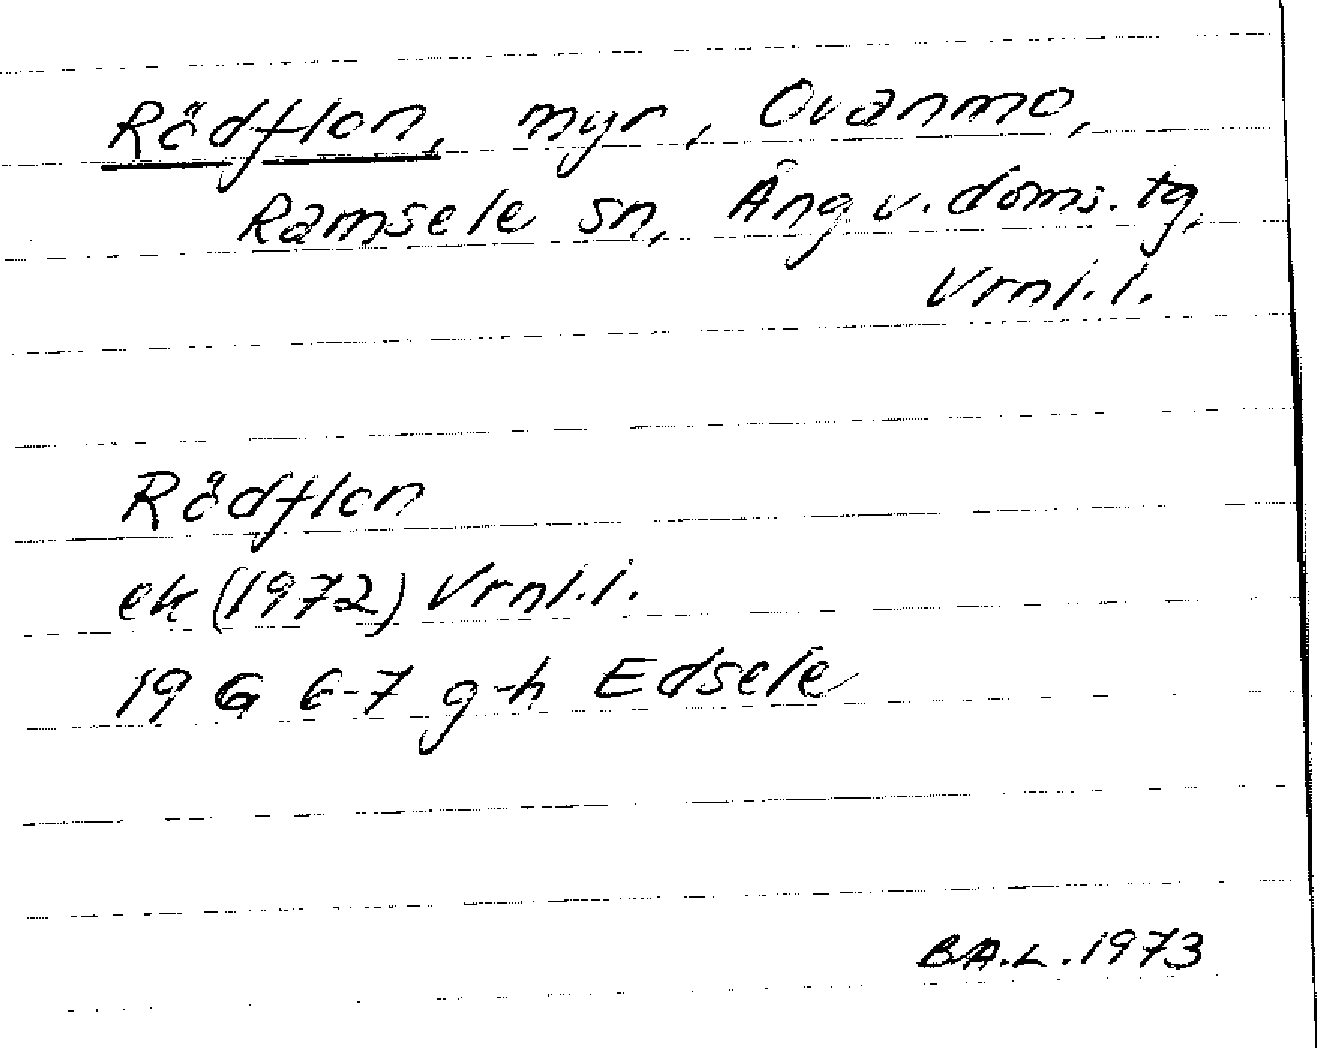 Rödflon, myr, Ovanmo,
Ramsele sn, Ång v. doms. tg,
Vrnl. l.
Rödflon
ek (1972) Vrnl. l.
19 G 6-7 g-h Edsele
B.A.L. 1973